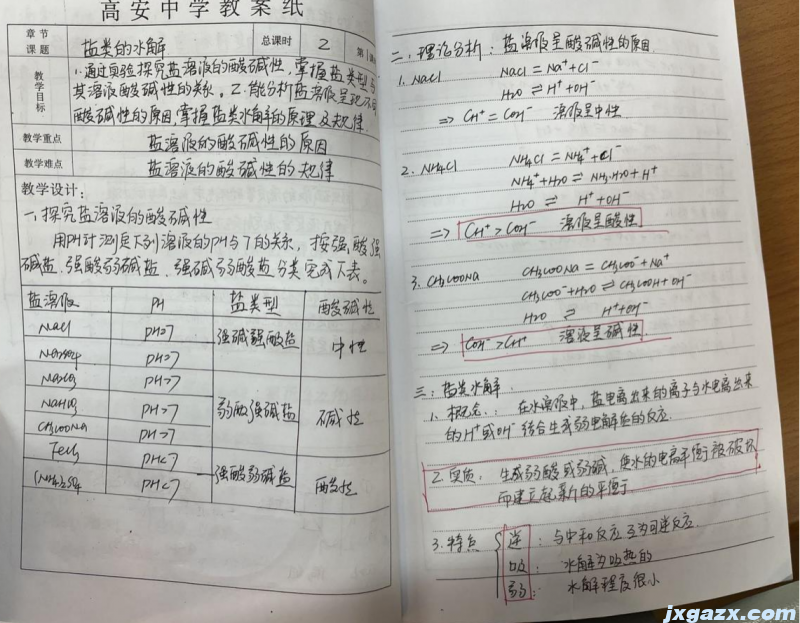 高安中学教案纸
章节课题 盐类的水解 总课时 2
教学目标 1.通过实验探究盐溶液的酸碱性,掌握盐类型与
其溶液酸碱性的关系。2.能分析盐溶液呈现不同
酸碱性的原因,掌握盐类水解的原理及规律.
教学重点 盐溶液的酸碱性的原因
教学难点 盐溶液的酸碱性的规律
教学设计:
一.探究盐溶液的酸碱性
用PH计测定下列溶液的PH与7的关系,按强酸强
碱盐.强酸弱碱盐.强碱弱酸盐分类完成下表。
盐溶液 PH 盐类型 酸碱性
NaCl PH=7 强碱强酸盐 中性
PH=7
PH>7 弱酸强碱盐 碱性
PH>7
CH3COONa PH>7
PH<7 强酸弱碱盐 酸性
(NH4)2SO4 PH<7
二.理论分析:盐溶液呈酸碱性的原因
1. NaCl NaCl = Na⁺+Cl⁻
H2O ⇌ H⁺+OH⁻
=> CH⁺=COH⁻ 溶液呈中性
2. NH4Cl NH4Cl = NH4⁺+Cl⁻
NH4⁺+H2O ⇌ NH3·H2O+H⁺
H2O ⇌ H⁺+OH⁻
=> CH⁺>COH⁻ 溶液呈酸性
3. CH3COONa CH3COONa = CH3COO⁻+Na⁺
CH3COO⁻+H2O ⇌ CH3COOH+OH⁻
H2O ⇌ H⁺+OH⁻
=> COH⁻>CH⁺ 溶液呈碱性
三:盐类水解.
1. 概念:在水溶液中,盐电离出来的离子与水电离出来
的H⁺或OH⁻结合生成弱电解质的反应.
2. 实质:生成弱酸或弱碱,使水的电离平衡被破坏
而建立起新的平衡.
3. 特点 逆:与中和反应互为可逆反应.
吸:水解为吸热的
弱:水解程度很小
jxgazx.com